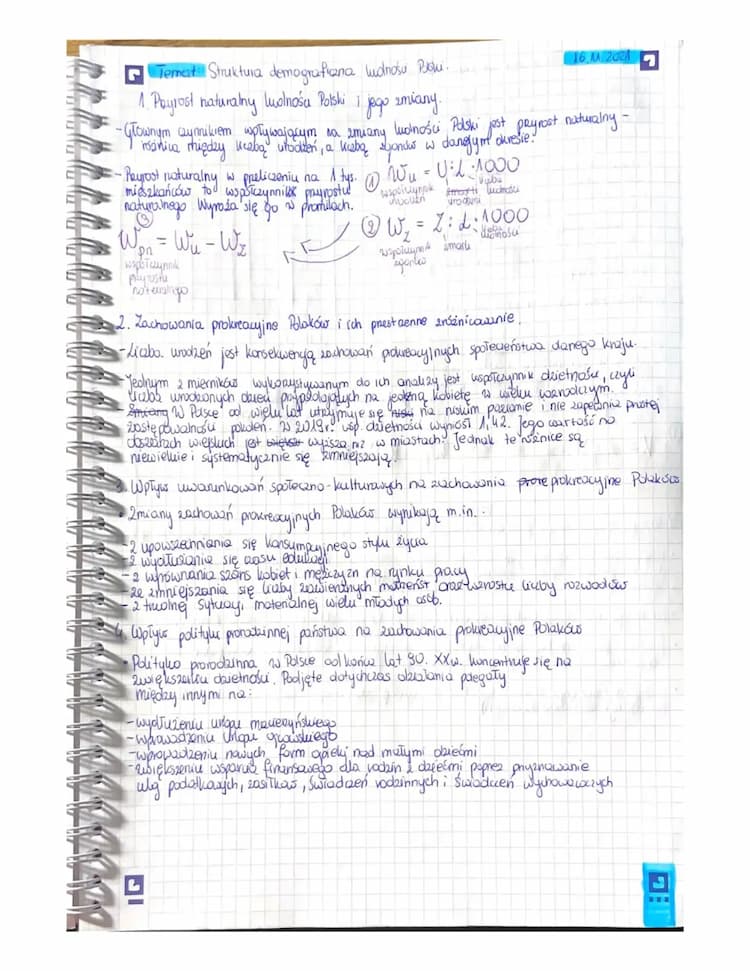 16.11.2021
Temat: Struktura demograficzna ludności Polski.
1. Przyrost naturalny ludności Polski i jego zmiany.
- Głównym czynnikiem wpływającym na zmiany ludności Polski jest przyrost naturalny -
różnica między liczbą urodzeń, a liczbą zgonów w danym okresie.
- Przyrost naturalny w przeliczeniu na 1 tys.
mieszkańców to współczynnik przyrostu
naturalnego. Wyraża się go w promilach.
① Wu = U : L · 1000
współczynnik urodzeń
urodzeni
liczba ludności
② Wz = Z : L · 1000
współczynnik zgonów
zmarli
liczba ludności
③
Wpn = Wu - Wz
współczynnik
przyrostu
naturalnego
2. Zachowania prokreacyjne Polaków i ich przestrzenne zróżnicowanie.
- Liczba urodzeń jest konsekwencją zachowań prokreacyjnych społeczeństwa danego kraju.
- Jednym z mierników wykorzystywanym do ich analizy jest współczynnik dzietności, czyli
liczba urodzonych dzieci przypadających na jedną kobietę w wieku rozrodczym.
- W Polsce od wielu lat utrzymuje się na niskim poziomie i nie zapewnia prostej
zastępowalności pokoleń. W 2019r. wsp. dzietności wyniósł 1,42. Jego wartość na
obszarach wiejskich jest wyższa niż w miastach. Jednak te różnice są
niewielkie i systematycznie się zmniejszają.
3. Wpływ uwarunkowań społeczno-kulturowych na zachowania prokreacyjne Polaków
• Zmiany zachowań prokreacyjnych Polaków wynikają m.in.:
- z upowszechniania się konsumpcyjnego stylu życia
- z wydłużania się czasu edukacji
- z wyrównania szans kobiet i mężczyzn na rynku pracy
- ze zmniejszania się liczby zawieranych małżeństw oraz wzrostu liczby rozwodów
- z trudnej sytuacji materialnej wielu młodych osób.
4. Wpływ polityki prorodzinnej państwa na zachowania prokreacyjne Polaków
• Polityka prorodzinna w Polsce od końca lat 90. XXw. koncentruje się na
zwiększaniu dzietności. Podjęte dotychczas działania polegały
między innymi na:
- wydłużeniu urlopu macierzyńskiego
- wprowadzeniu urlopu ojcowskiego
- wprowadzeniu nowych form opieki nad małymi dziećmi
- zwiększeniu wsparcia finansowego dla rodzin z dziećmi poprzez przyznawanie
ulg podatkowych, zasiłków, świadczeń rodzinnych i świadczeń wychowawczych